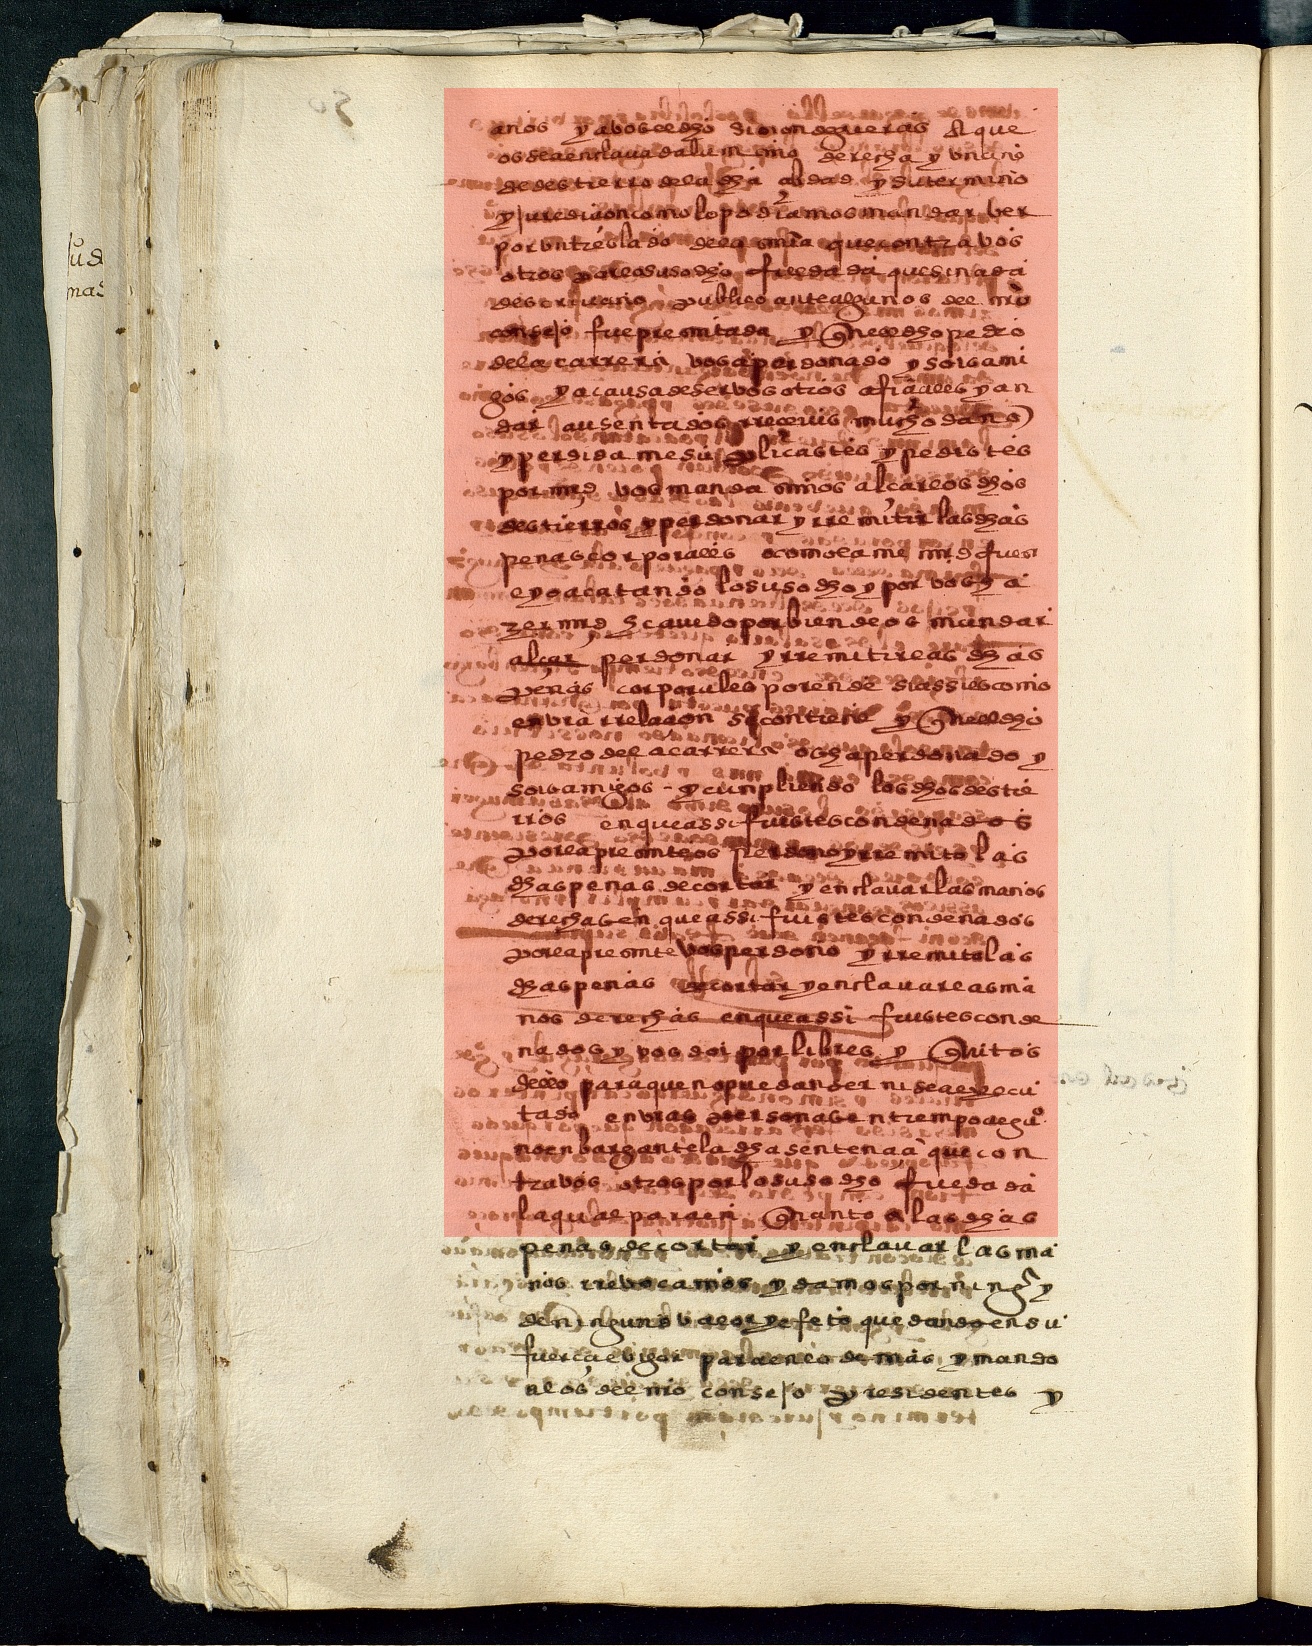 años y a vos el dho simon de gueras A que
os sea enclavada la un mano derecha y un año
de destierro de la dha cibdad y su termino
y juredicion como lo podiamos mandar ber
por un treslado de la snia que contra vos
otros por lo suso dho fue dada que sinada
de escrivano publico ante algunos del nro
consejo fue presentada y que el dho pedro
de la carrera vos a perdonado y sois ami
gos y a causa de ser vosotros oficiales y an
dar ausentados rrecevis mucho daño
y perdida me suplicastes y pedistes
por md vos mandasemos alçar los dhos
destierros y perdonar y rremitir las dhas
penas corporales o como la mi md fuese
e yo acatando lo suso dho y por vos ha
zer md he avido por bien de os mandar
alçar perdonar y rremitir las dhas
penas corporales por ende si assi es como
en vra rrelacion se contiene y que el dho
pedro de la carrera os ha perdonado y
sois amigos - y cunpliendo los dhos destie
rros en que assi fuistes condenados
por la presente os perdono y rremito las
dhas penas de cortar y enclavar las manos
derechas en que assi fuistes condenados
por la presente vos perdono y rremito las
dhas penas de cortar y enclavar las ma
nos derechas en que assi fuistes conde
nados y vos doi por libres y quitos
dello para que no puedan ser ni sea execu
tado en vras personas en tiempo algu°
no enbargante la dha sentencia que con
tra vos otros por lo suso dho fue dada
la qual para en quanto a las dhas
penas de cortar y enclavar las ma
nos rrevocamos y damos por ning° y
de ninguno valor y efeto quedando en su
fuerça e vigor para en lo demas y mando
a los del mio consejo presidentes y